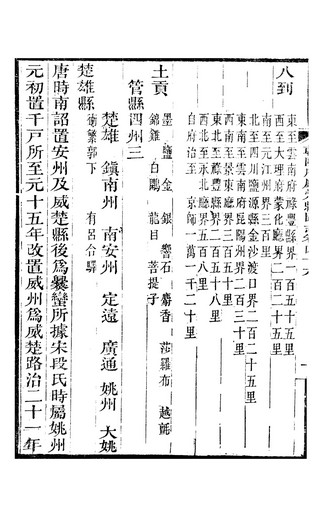 八到
東至雲南府祿豐縣界一百五十五里
西至大理府蒙化廳界二百二十里
南至元江州界三百里
北至四川鹽源縣金沙渡口界二百二十五里
東南至雲南府昆陽州界二百三十里
西南至景東廳界三百五里
東北至
西北至永北廳界五百八里
自府治至京師一萬一千二十里
土貢
墨鹽 金 銀 響石 麝香 莎羅布 越毡
錦雞 白鷳 龍目 菩提子
管縣四州三
楚雄 鎮南州 南安州 定遠 廣通 姚州 大姚
楚雄縣
衝繁郭下 有呂合驛
唐時南詔置安州及威楚縣後爲爨蠻所據宋段氏時屬姚州
元初置千戶所至元十五年改置威州爲威楚路治二十一年